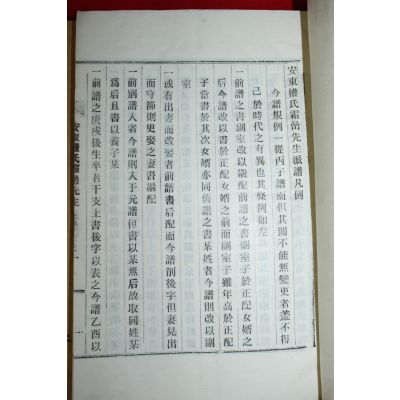 安東權氏霜嵒先生派譜凡例
今譜規例一從丙子譜而但其間不能無變更者蓋不得
已於時代之有異也其條例如左
一前譜之書副室改以繼配前譜之書副室子於正配女婿之
后今譜改以書於正配女婿之前而副室子雖年高於正配
子當書於其次女婿亦同舊譜之書某姓者今譜則改以副
室
一或有出妻而改娶者前譜書后配而今譜削後字但妻見出
而守節則更娶之妻書繼配
一前別譜入者今譜則入于元譜但書以某無后故取國姓某
為后且書以養子某
一前譜之庚戌後生卒者干支上書後字以表之今譜乙酉以
安東權氏霜嵒先生
一